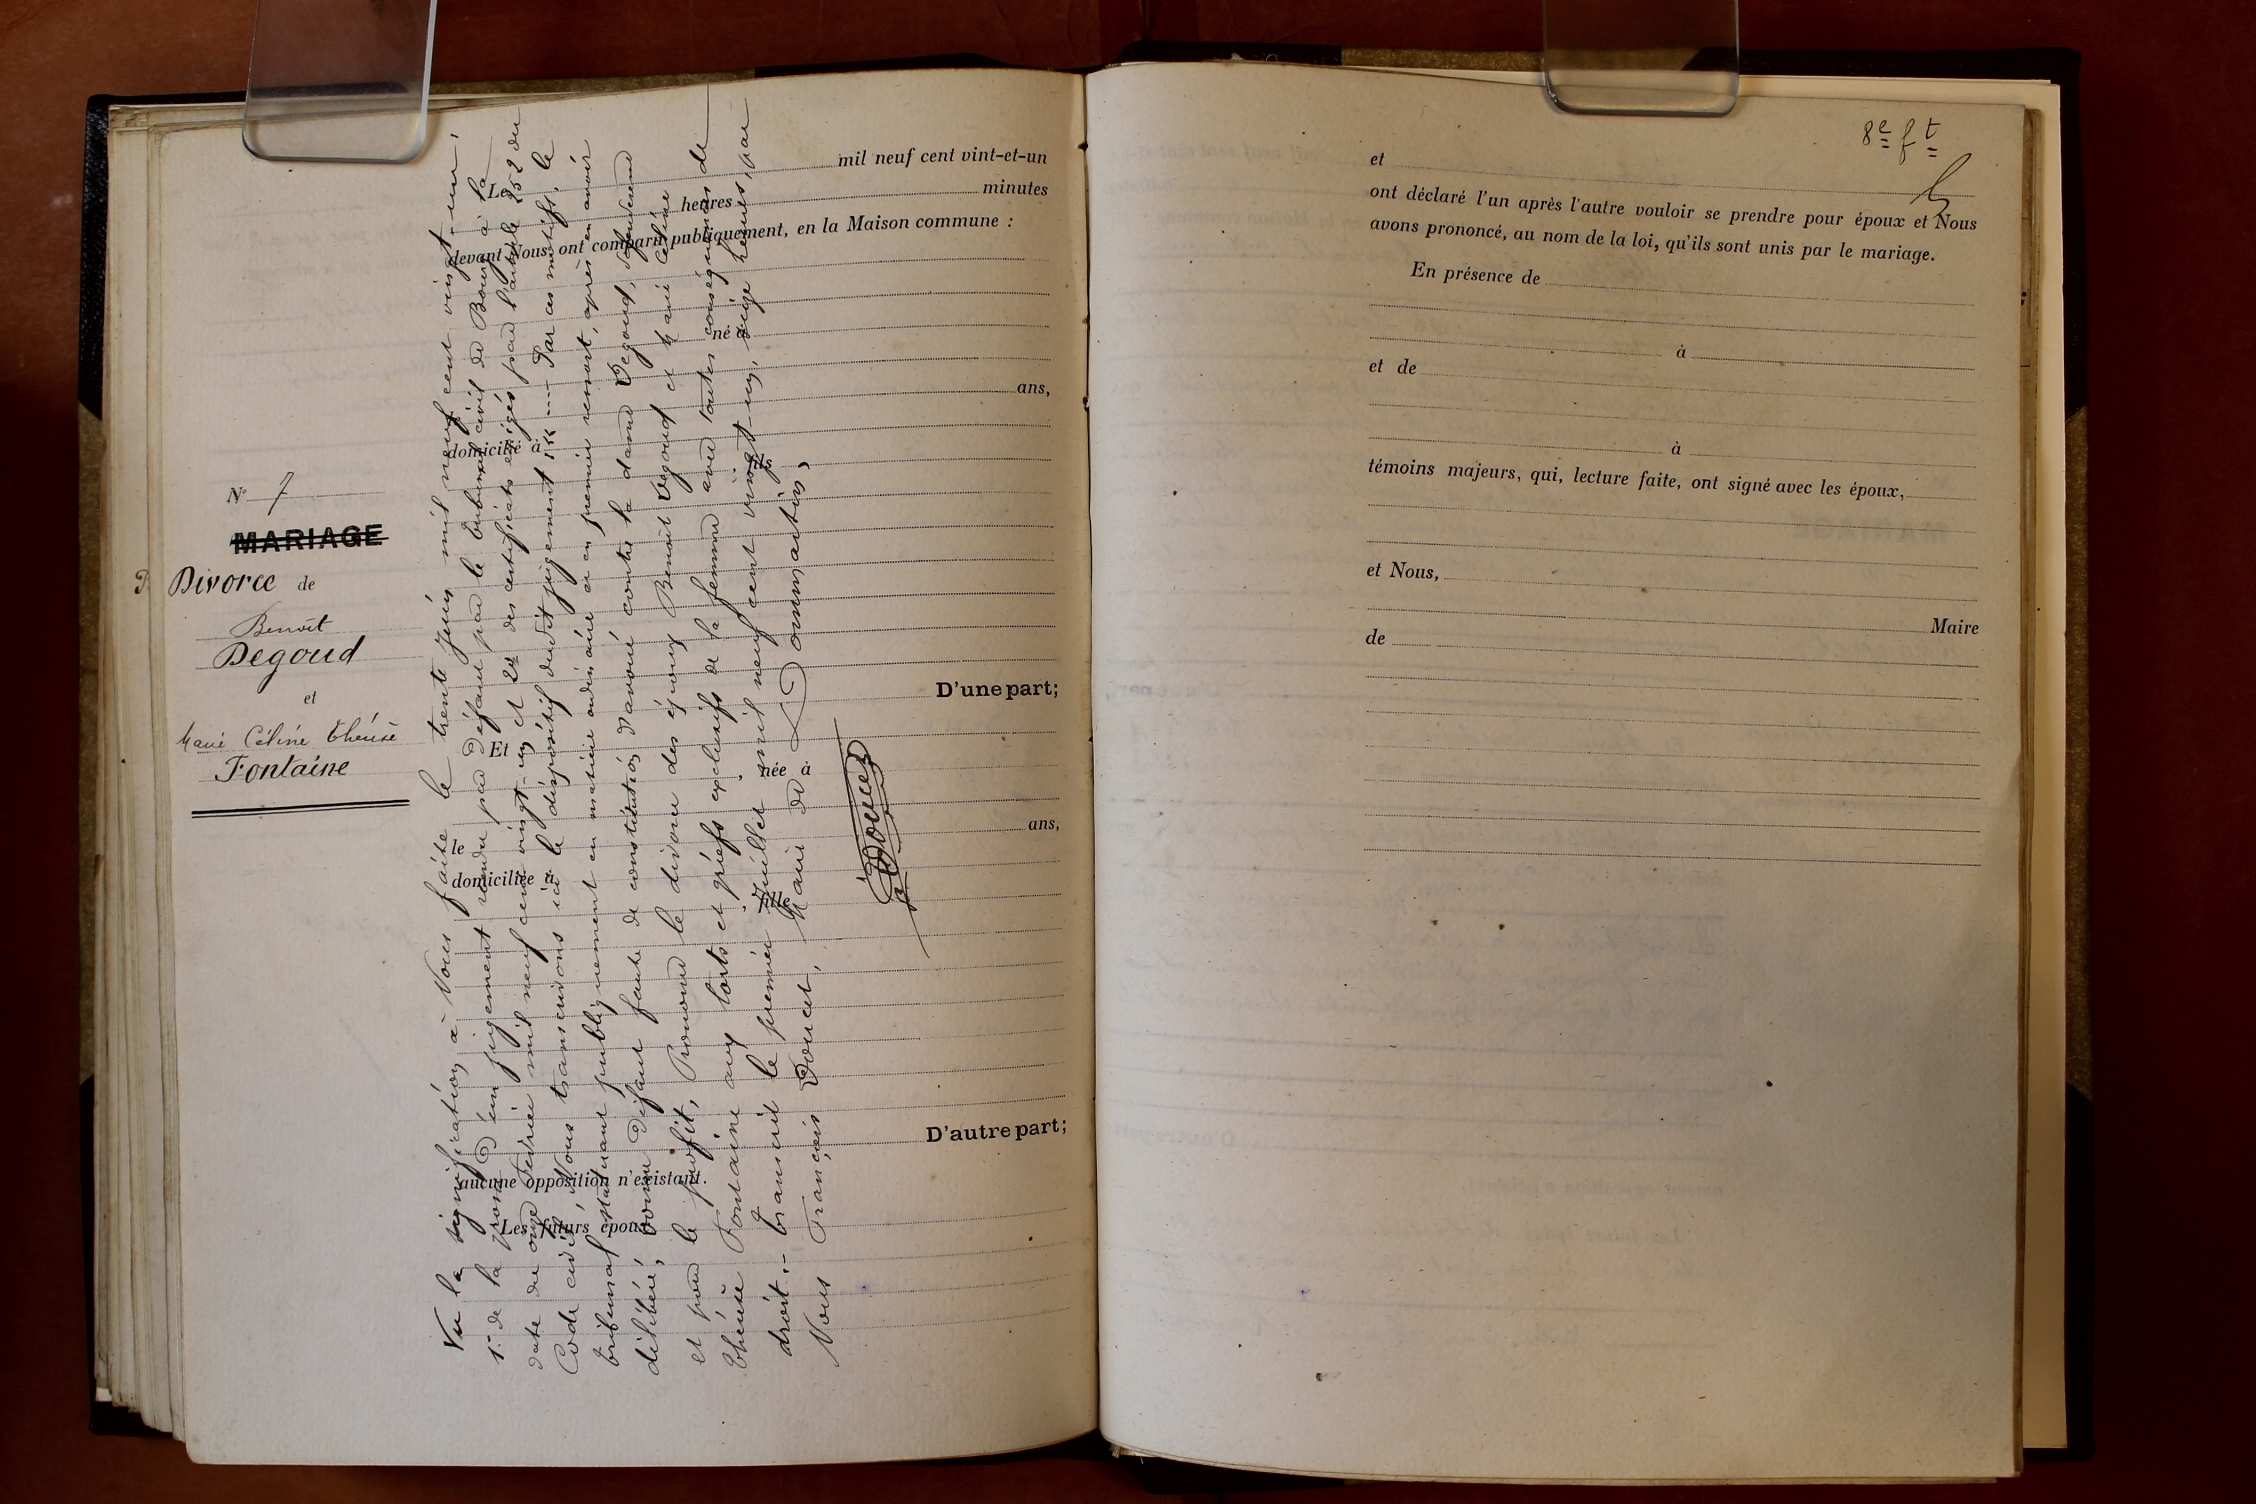 N° 7
MARIAGE
Divorce de
Benoît
Degoud
et
Marie Céline Thérèse
Fontaine
Le mil neuf cent vint-et-un
heures minutes
devant Nous, ont comparu publiquement, en la Maison commune :
né à
ans,
domicilié à
fils
D'une part;
Et
née à
le ans,
domiciliée à
fille
D'autre part;
aucune opposition n'existant.
Les futurs époux
Vu la signification à Nous faite le trente Juin mil neuf cent vingt-un,
1° de la grosse d'un jugement rendu par défaut par le tribunal civil de Bourg à la
date du onze Février mil neuf cent vingt-un et 2° des certificats exigés par l'article 252 du
Code civil, Nous transcrivons ici le dispositif dudit jugement : Par ces motifs, le
tribunal statuant publiquement en matière ordinaire et en premier ressort, après en avoir
délibéré, Donne défaut faute de constitution d'avoué contre la dame Degoud, défenderesse
et pour le profit, Prononce le divorce des époux Benoît Degoud et Marie Céline
Thérèse Fontaine aux torts et griefs exclusifs de la femme avec toutes conséquences de
droit.- Transcrit le premier Juillet mil neuf cent vingt-un, seize heures, par
Nous François Doucet, Maire de Dommartin,
Doucet
8e ft
et
ont déclaré l'un après l'autre vouloir se prendre pour époux et Nous
avons prononcé, au nom de la loi, qu'ils sont unis par le mariage.
En présence de
à
et de
à
témoins majeurs, qui, lecture faite, ont signé avec les époux,
et Nous,
Maire
de